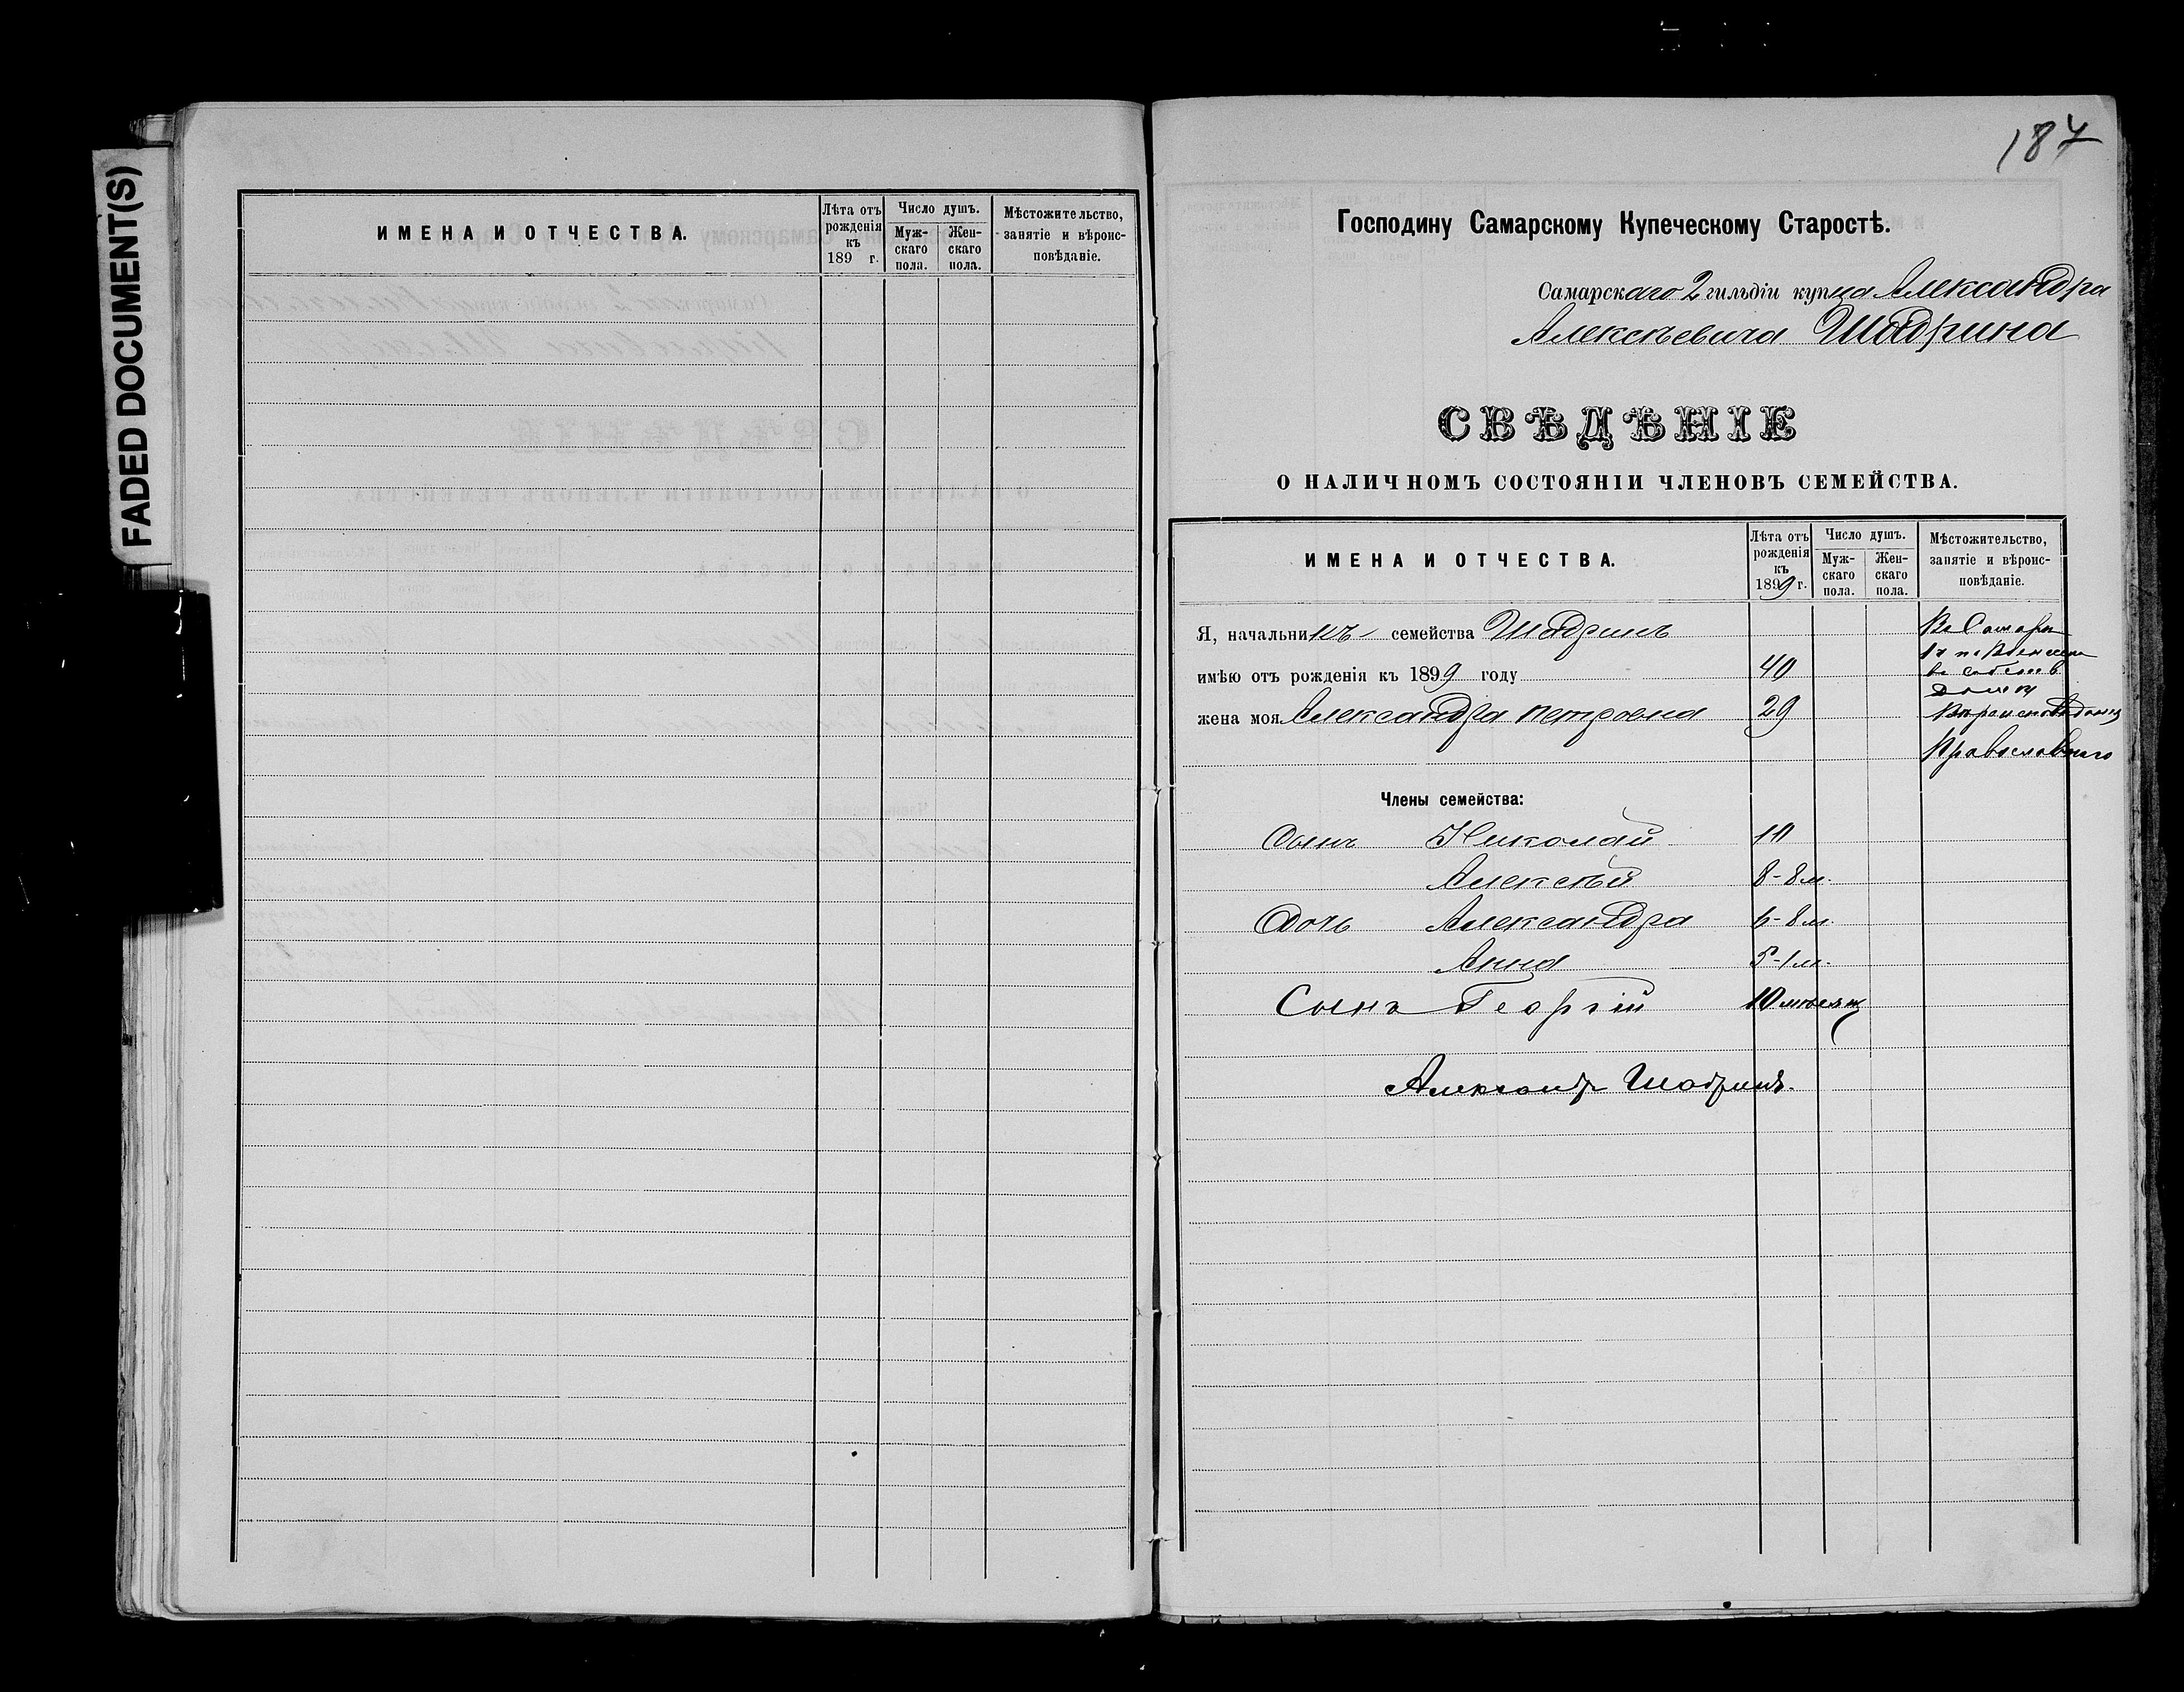 FADED DOCUMENT(S)
ИМЕНА И ОТЧЕСТВА.
Лѣта отъ рожденія къ 189 г.
Число душъ.
Муж-скаго пола.
Жен-скаго пола.
Мѣстожительство, занятіе и вѣроис-повѣданіе.
187
Господину Самарскому Купеческому Старостѣ.
Самарскаго 2 гильдіи купца Александра
Алексѣевича Шадрина
СВѢДѢНІЕ
О НАЛИЧНОМЪ СОСТОЯНІИ ЧЛЕНОВЪ СЕМЕЙСТВА.
ИМЕНА И ОТЧЕСТВА.
Лѣта отъ рожденія къ 1899 г.
Число душъ.
Муж-скаго пола.
Жен-скаго пола.
Мѣстожительство, занятіе и вѣроис-повѣданіе.
Я, начальникъ семейства Шадринъ
Въ Самарѣ
имѣю отъ рожденія къ 1899 году 40
въ собств
домѣ
жена моя Александра Петровна 29
Вѣроисповѣданія
Православнаго
Члены семейства:
Сынъ Николай 10
Алексѣй 8-8 м.
Дочь Александра 6-8 м.
Анна 5-1 м.
Сынъ Георгій 10 мѣсяц
Александр Шадринъ.